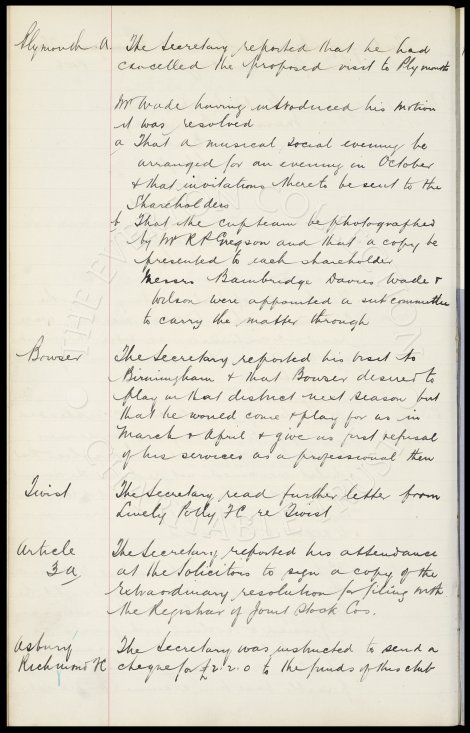 Plymouth A. The Secretary reported that he had
cancelled the proposed visit to Plymouth
Mr Wade having introduced his motion
it was resolved
a That a musical social evening be
arranged for an evening in October
& that invitations thereto be sent to the
Shareholders
b That the cup team be photographed
by Mr R P Gregson and that a copy be
presented to each shareholder
Messrs Bainbridge Davies Wade &
Wilson were appointed a sub committee
to carry the matter through
Bowser The Secretary reported his visit to
Birmingham & that Bowser desired to
play in that district next season but
that he would come & play for us in
March & April & give us first refusal
of his services as a professional then
Twist The Secretary read further letter from
Lively Polly FC re Twist
Article The Secretary reported his attendance
3a at the Solicitors to sign a copy of the
extraordinary resolution for filing with
the Registrar of Joint Stock Cos.
Asbury The Secretary was instructed to send a
Richmond FC cheque for £2.2.0 to the funds of this club